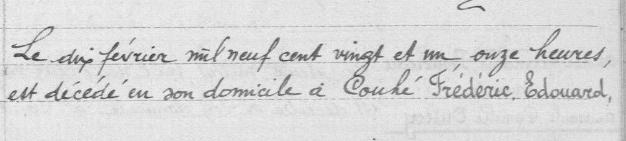 Le dix février mil neuf cent vingt et un, onze heures,
est décédé en son domicile à Couhé Frédéric, Edouard,